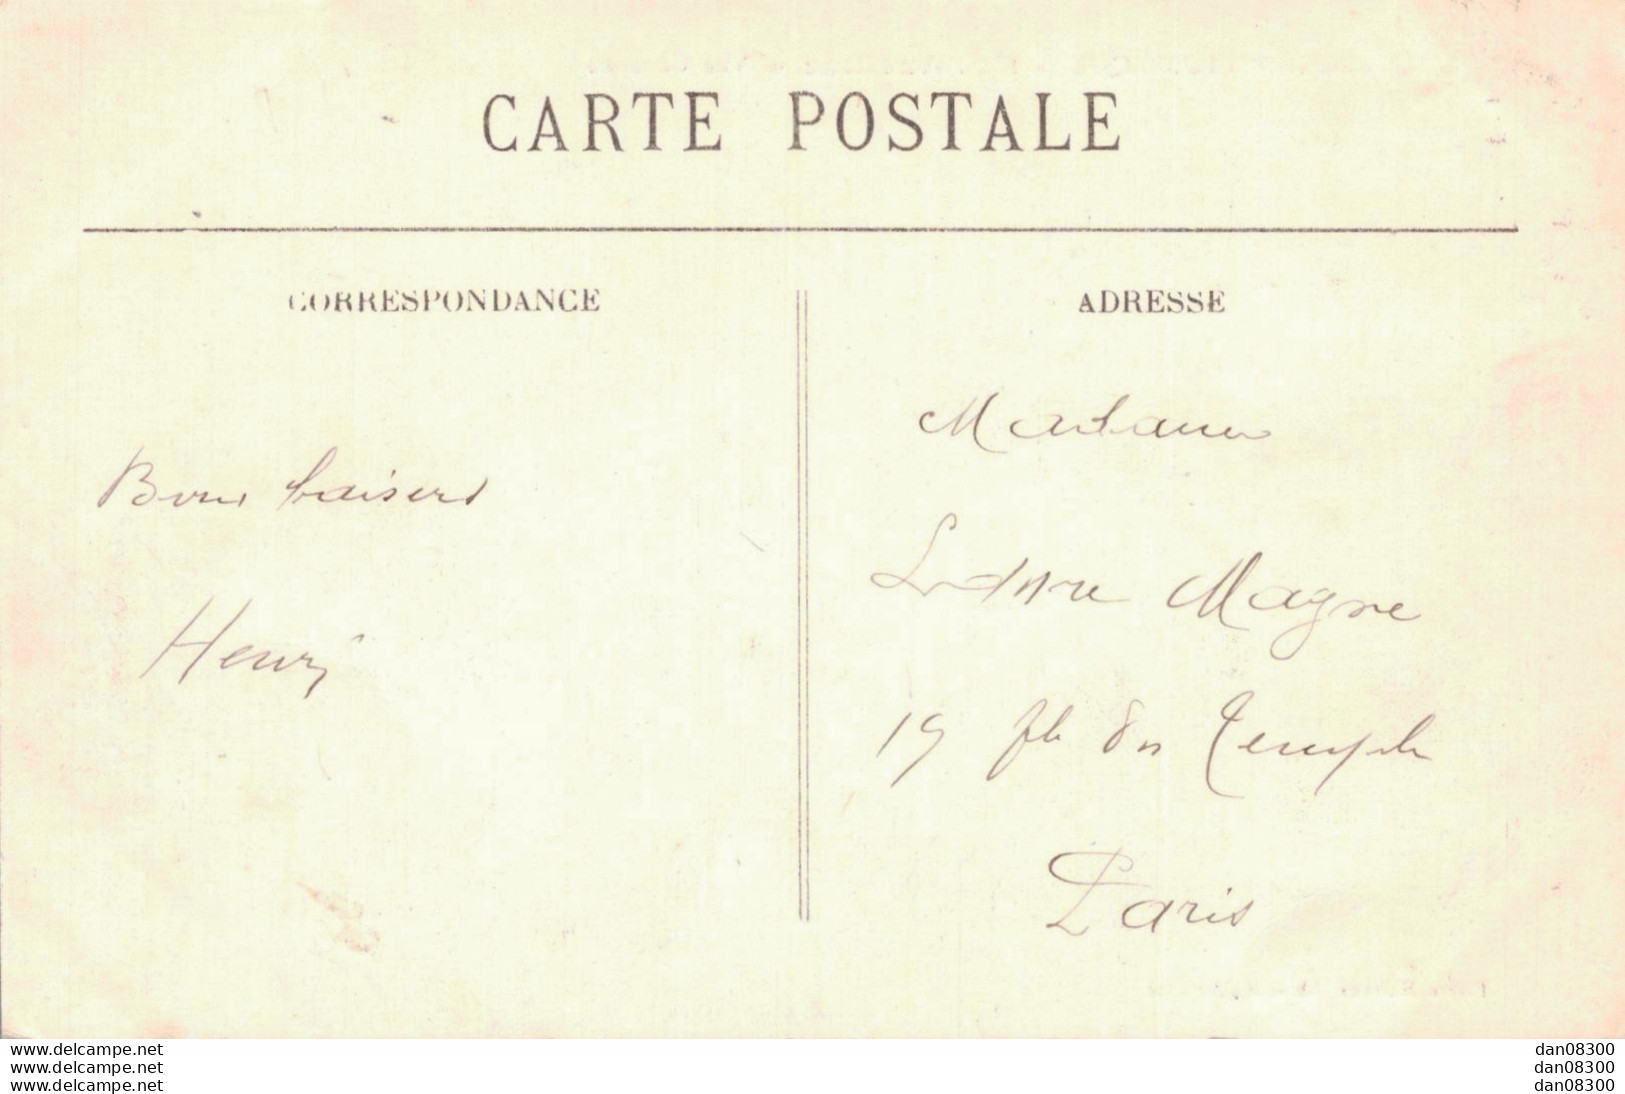 CARTE POSTALE
CORRESPONDANCE
ADRESSE
Bons baisers
Henri
Madame
Magne
19 fb du Temple
Paris
www.delcampe.net
www.delcampe.net
www.delcampe.net
dan08300
dan08300
dan08300